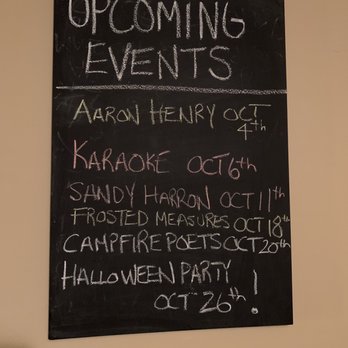 UPCOMING
EVENTS
AARON HENRY OCT
4th
KARAOKE OCT 6th
SANDY HARRON OCT 11th
FROSTED MEASURES OCT 18th
CAMPFIRE POETS OCT 20th
HALLOWEEN PARTY
OCT 26th!